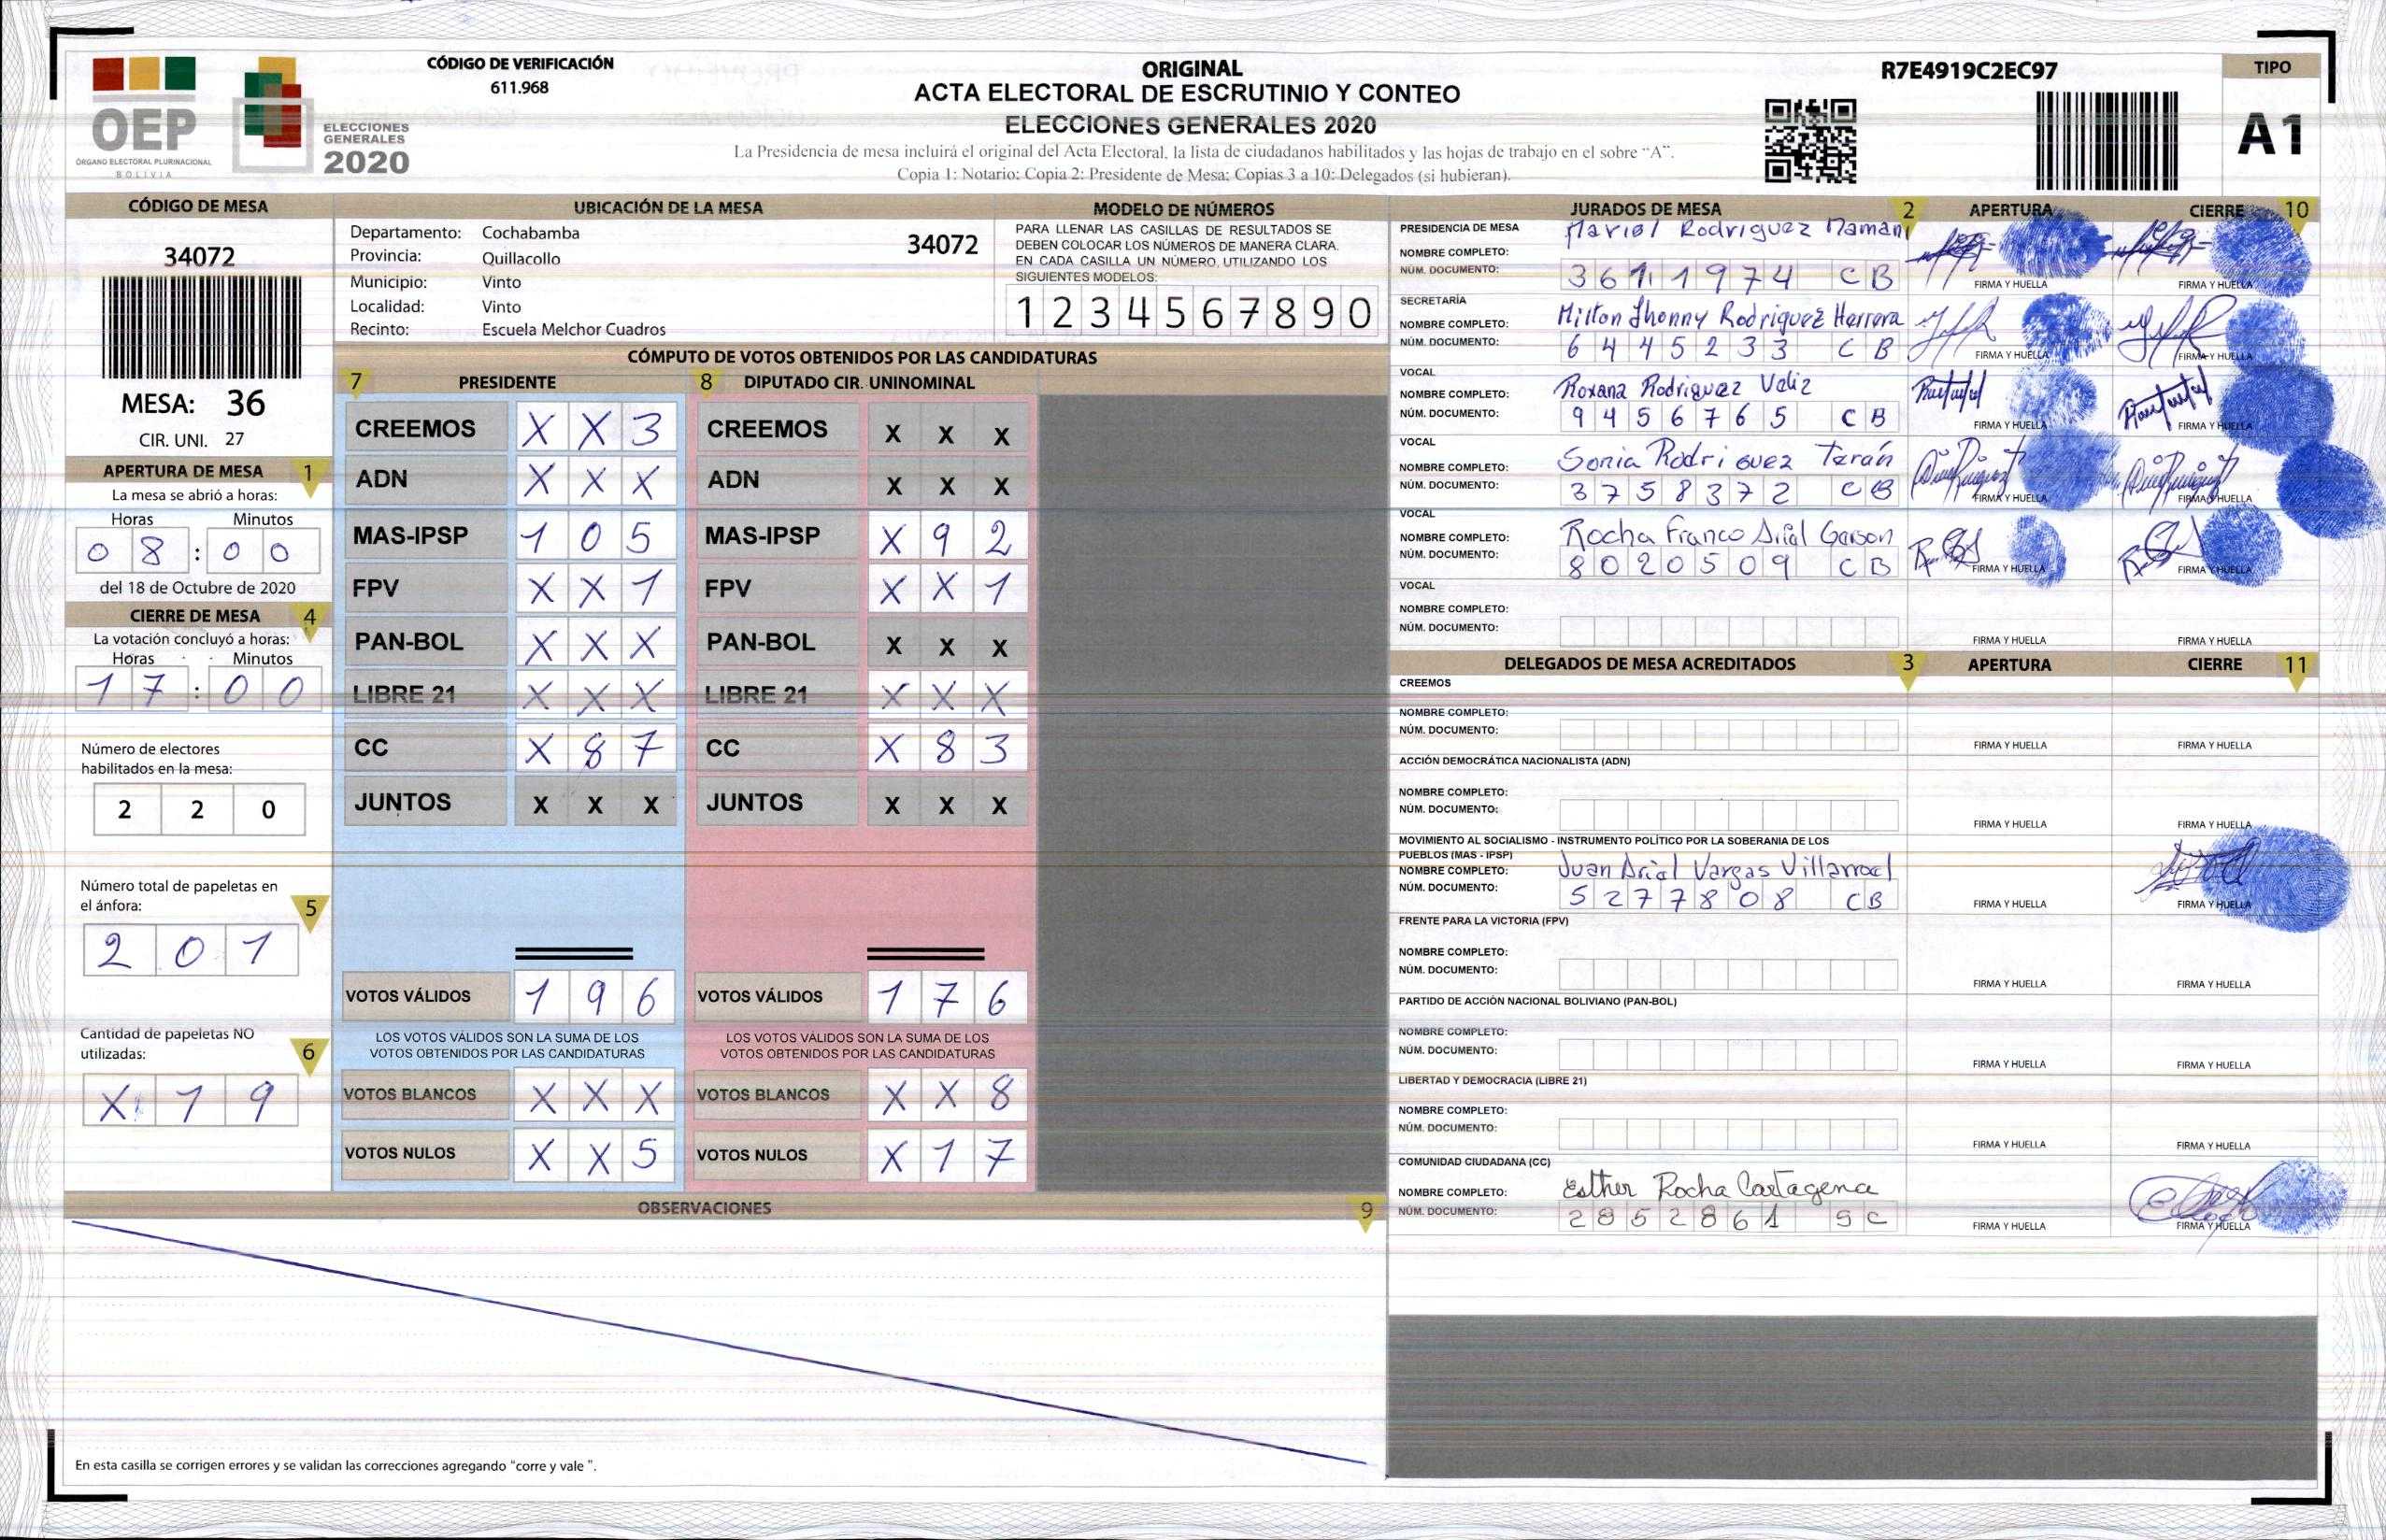 OEP
ÓRGANO ELECTORAL PLURINACIONAL
BOLIVIA
ELECCIONES
GENERALES
2020
CÓDIGO DE VERIFICACIÓN
611.968
ORIGINAL
ACTA ELECTORAL DE ESCRUTINIO Y CONTEO
ELECCIONES GENERALES 2020
La Presidencia de mesa incluirá el original del Acta Electoral, la lista de ciudadanos habilitados y las hojas de trabajo en el sobre “A”.
Copia 1: Notario; Copia 2: Presidente de Mesa; Copias 3 a 10: Delegados (si hubieran).
R7E4919C2EC97
TIPO
A1
CÓDIGO DE MESA
34072
MESA: 36
CIR. UNI. 27
APERTURA DE MESA 1
La mesa se abrió a horas:
Horas Minutos
08:00
del 18 de Octubre de 2020
CIERRE DE MESA 4
La votación concluyó a horas:
Horas Minutos
17:00
Número de electores
habilitados en la mesa:
220
Número total de papeletas en
el ánfora: 5
201
Cantidad de papeletas NO
utilizadas: 6
X19
UBICACIÓN DE LA MESA
Departamento: Cochabamba 34072
Provincia: Quillacollo
Municipio: Vinto
Localidad: Vinto
Recinto: Escuela Melchor Cuadros
MODELO DE NÚMEROS
PARA LLENAR LAS CASILLAS DE RESULTADOS SE
DEBEN COLOCAR LOS NÚMEROS DE MANERA CLARA.
EN CADA CASILLA UN NÚMERO, UTILIZANDO LOS
SIGUIENTES MODELOS:
1234567890
CÓMPUTO DE VOTOS OBTENIDOS POR LAS CANDIDATURAS
7 PRESIDENTE 8 DIPUTADO CIR. UNINOMINAL
CREEMOS X X 3 CREEMOS X X X
ADN X X X ADN X X X
MAS-IPSP 1 0 5 MAS-IPSP X 9 2
FPV X X 1 FPV X X 1
PAN-BOL X X X PAN-BOL X X X
LIBRE 21 X X X LIBRE 21 X X X
CC X 8 7 CC X 8 3
JUNTOS X X X JUNTOS X X X
VOTOS VÁLIDOS 1 9 6 VOTOS VÁLIDOS 1 7 6
LOS VOTOS VÁLIDOS SON LA SUMA DE LOS LOS VOTOS VÁLIDOS SON LA SUMA DE LOS
VOTOS OBTENIDOS POR LAS CANDIDATURAS VOTOS OBTENIDOS POR LAS CANDIDATURAS
VOTOS BLANCOS X X X VOTOS BLANCOS X X 8
VOTOS NULOS X X 5 VOTOS NULOS X 1 7
OBSERVACIONES 9
En esta casilla se corrigen errores y se validan las correcciones agregando “corre y vale ”.
JURADOS DE MESA 2 APERTURA CIERRE 10
PRESIDENCIA DE MESA
NOMBRE COMPLETO: Mariel Rodriguez Mamani
NÚM. DOCUMENTO: 3611974 CB FIRMA Y HUELLA FIRMA Y HUELLA
SECRETARÍA
NOMBRE COMPLETO: Milton Jhonny Rodriguez Herrera
NÚM. DOCUMENTO: 6445233 CB FIRMA Y HUELLA FIRMA Y HUELLA
VOCAL
NOMBRE COMPLETO: Roxana Rodriguez Veliz
NÚM. DOCUMENTO: 9456765 CB FIRMA Y HUELLA FIRMA Y HUELLA
VOCAL
NOMBRE COMPLETO: Sonia Rodriguez Terán
NÚM. DOCUMENTO: 3758372 CB FIRMA Y HUELLA FIRMA Y HUELLA
VOCAL
NOMBRE COMPLETO: Rocha Franco Ariel Gerson
NÚM. DOCUMENTO: 8020509 CB FIRMA Y HUELLA FIRMA Y HUELLA
VOCAL
NOMBRE COMPLETO:
NÚM. DOCUMENTO: FIRMA Y HUELLA FIRMA Y HUELLA
DELEGADOS DE MESA ACREDITADOS 3 APERTURA CIERRE 11
CREEMOS
NOMBRE COMPLETO:
NÚM. DOCUMENTO: FIRMA Y HUELLA FIRMA Y HUELLA
ACCIÓN DEMOCRÁTICA NACIONALISTA (ADN)
NOMBRE COMPLETO:
NÚM. DOCUMENTO: FIRMA Y HUELLA FIRMA Y HUELLA
MOVIMIENTO AL SOCIALISMO - INSTRUMENTO POLÍTICO POR LA SOBERANIA DE LOS
PUEBLOS (MAS - IPSP)
NOMBRE COMPLETO: Juan Ariel Vargas Villarroel
NÚM. DOCUMENTO: 5277808 CB FIRMA Y HUELLA FIRMA Y HUELLA
FRENTE PARA LA VICTORIA (FPV)
NOMBRE COMPLETO:
NÚM. DOCUMENTO: FIRMA Y HUELLA FIRMA Y HUELLA
PARTIDO DE ACCIÓN NACIONAL BOLIVIANO (PAN-BOL)
NOMBRE COMPLETO:
NÚM. DOCUMENTO: FIRMA Y HUELLA FIRMA Y HUELLA
LIBERTAD Y DEMOCRACIA (LIBRE 21)
NOMBRE COMPLETO:
NÚM. DOCUMENTO: FIRMA Y HUELLA FIRMA Y HUELLA
COMUNIDAD CIUDADANA (CC)
NOMBRE COMPLETO: Esther Rocha Cartagena
NÚM. DOCUMENTO: 2852861 SC FIRMA Y HUELLA FIRMA Y HUELLA